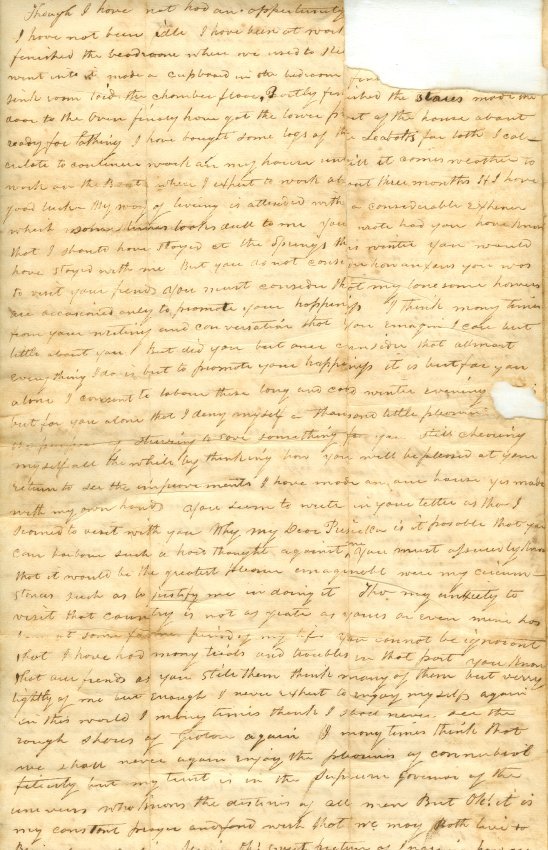 Though I have not had an opportunity
I have not been idle I have been at work
finished the beadroome where we used to sle
went into it made a cupboard in the bedroom
sink room laid the chamber floor, Partly fin ished the stares made me
door to the Oven finaly have got the lower part of the house about
ready for lathing I have bought some logs of the for lath I cal-
culate to continue work on my house untill it comes weather to
work on the Boat where I expect to work about three months If I have
good luck My way of living is attended with a considerable expence
which some times looks dull to me You wrote had you have known
that I should have stayed at the Springs this winter you would
have stayed with me But you do not consider how anxious you was
to visit your friends You must consider that my lonesome howers
are occasioned only to promote your happiness I think many times
from your writing and conversation that you emagin I care but
little about you But did you but once consider that allmost
everything I do is but to promote your happiness it is but for you
alone I consent to labour these long and cold winter evenings
but for you alone that I deny myself a thousand little pleasures
the purpose of striving to save something for you Still chearing
myself all the while by thinking how you will be pleased at your
return to see the improvements I have made on our house yes made
with my own hands You seem to write in your letter as tho I
scorned to visit with you Why my Dear is it posible that you
can harbour such a hard thought against me You must assuredly know
that it would be the greatest pleasure emaginable were my circum-
stances such as to justify me in doing it Tho my anxiety to
visit that country is not as greate as yours or even mine has
been at some former period of my life You cannot be ignorant
that I have had many trials and troubles in that part You know
that our friends as you stile them think many of them but verry
lightly of me but enough I never expect to enjoy myself again
in this world I many times think I shall never see the
rough shores of again I many times think that
we shall never again enjoy the pleasures of connubeal
felicity but my trust is in the Supreme Govenor of the
univers who knows the destinys of all men But Oh! it is
my constant prayer and fond wish that we may both live to